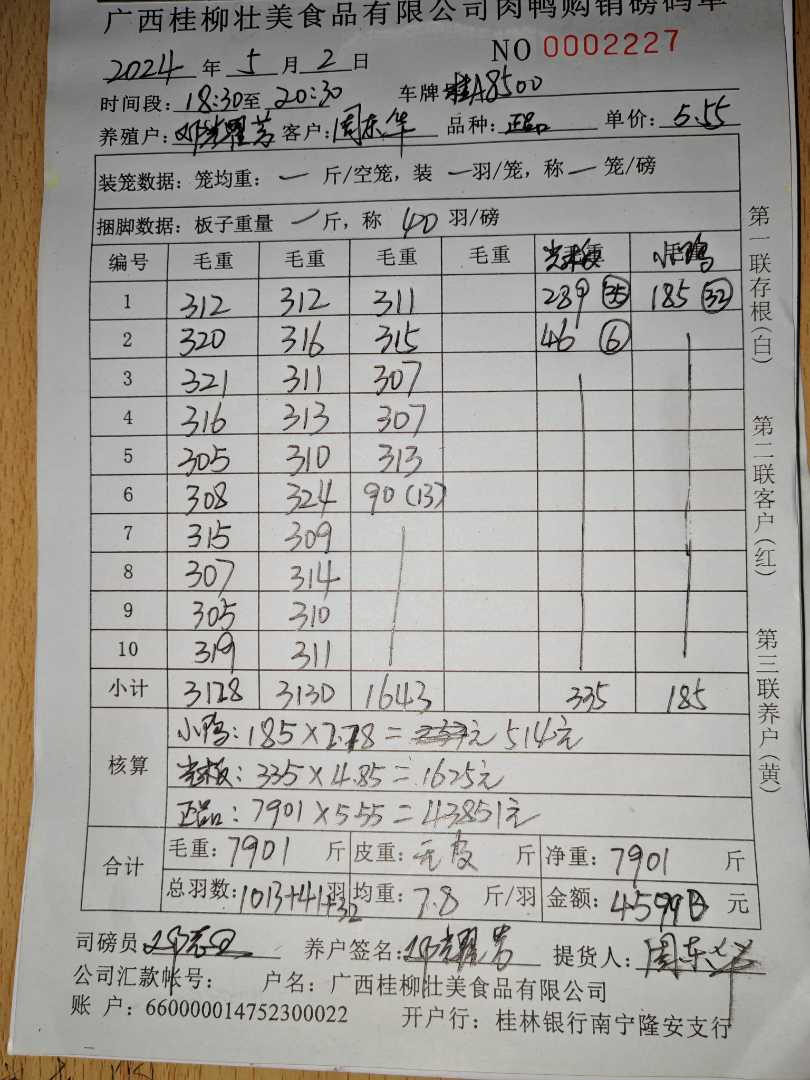 广西桂柳壮美食品有限公司肉鸭购销磅码单
NO 0002227
2024 年 5 月 2 日
时间段: 18:30 至 20:30 车牌 桂A8500
养殖户: 邓耀芳 客户: 周东华 品种: 正品 单价: 5.55
装笼数据: 笼均重: 一 斤/空笼, 装 一 羽/笼, 称 一 笼/磅
捆脚数据: 板子重量 一 斤, 称 40 羽/磅
编号 毛重 毛重 毛重 毛重 小鸭
1 312 312 311 289 (35) 185 (32)
2 320 316 315 46 (6)
3 321 311 307
4 316 313 307
5 305 310 313
6 308 324 90 (13)
7 315 309
8 307 314
9 305 310
10 319 311
小计 3128 3130 1643 335 185
核算
小鸭: 185 × 2.78 = 元 514元
: 335 × 4.85 = 1625元
正品: 7901 × 5.55 = 43851元
合计
毛重: 7901 斤 皮重: 无皮 斤 净重: 7901 斤
总羽数: 1013+41+32 羽 均重: 7.8 斤/羽 金额: 45990 元
司磅员 养户签名: 邓耀芳 提货人: 周东华
公司汇款帐号: 户名: 广西桂柳壮美食品有限公司
账 户: 660000014752300022 开户行: 桂林银行南宁隆安支行
第一联存根(白) 第二联客户(红) 第三联养户(黄)